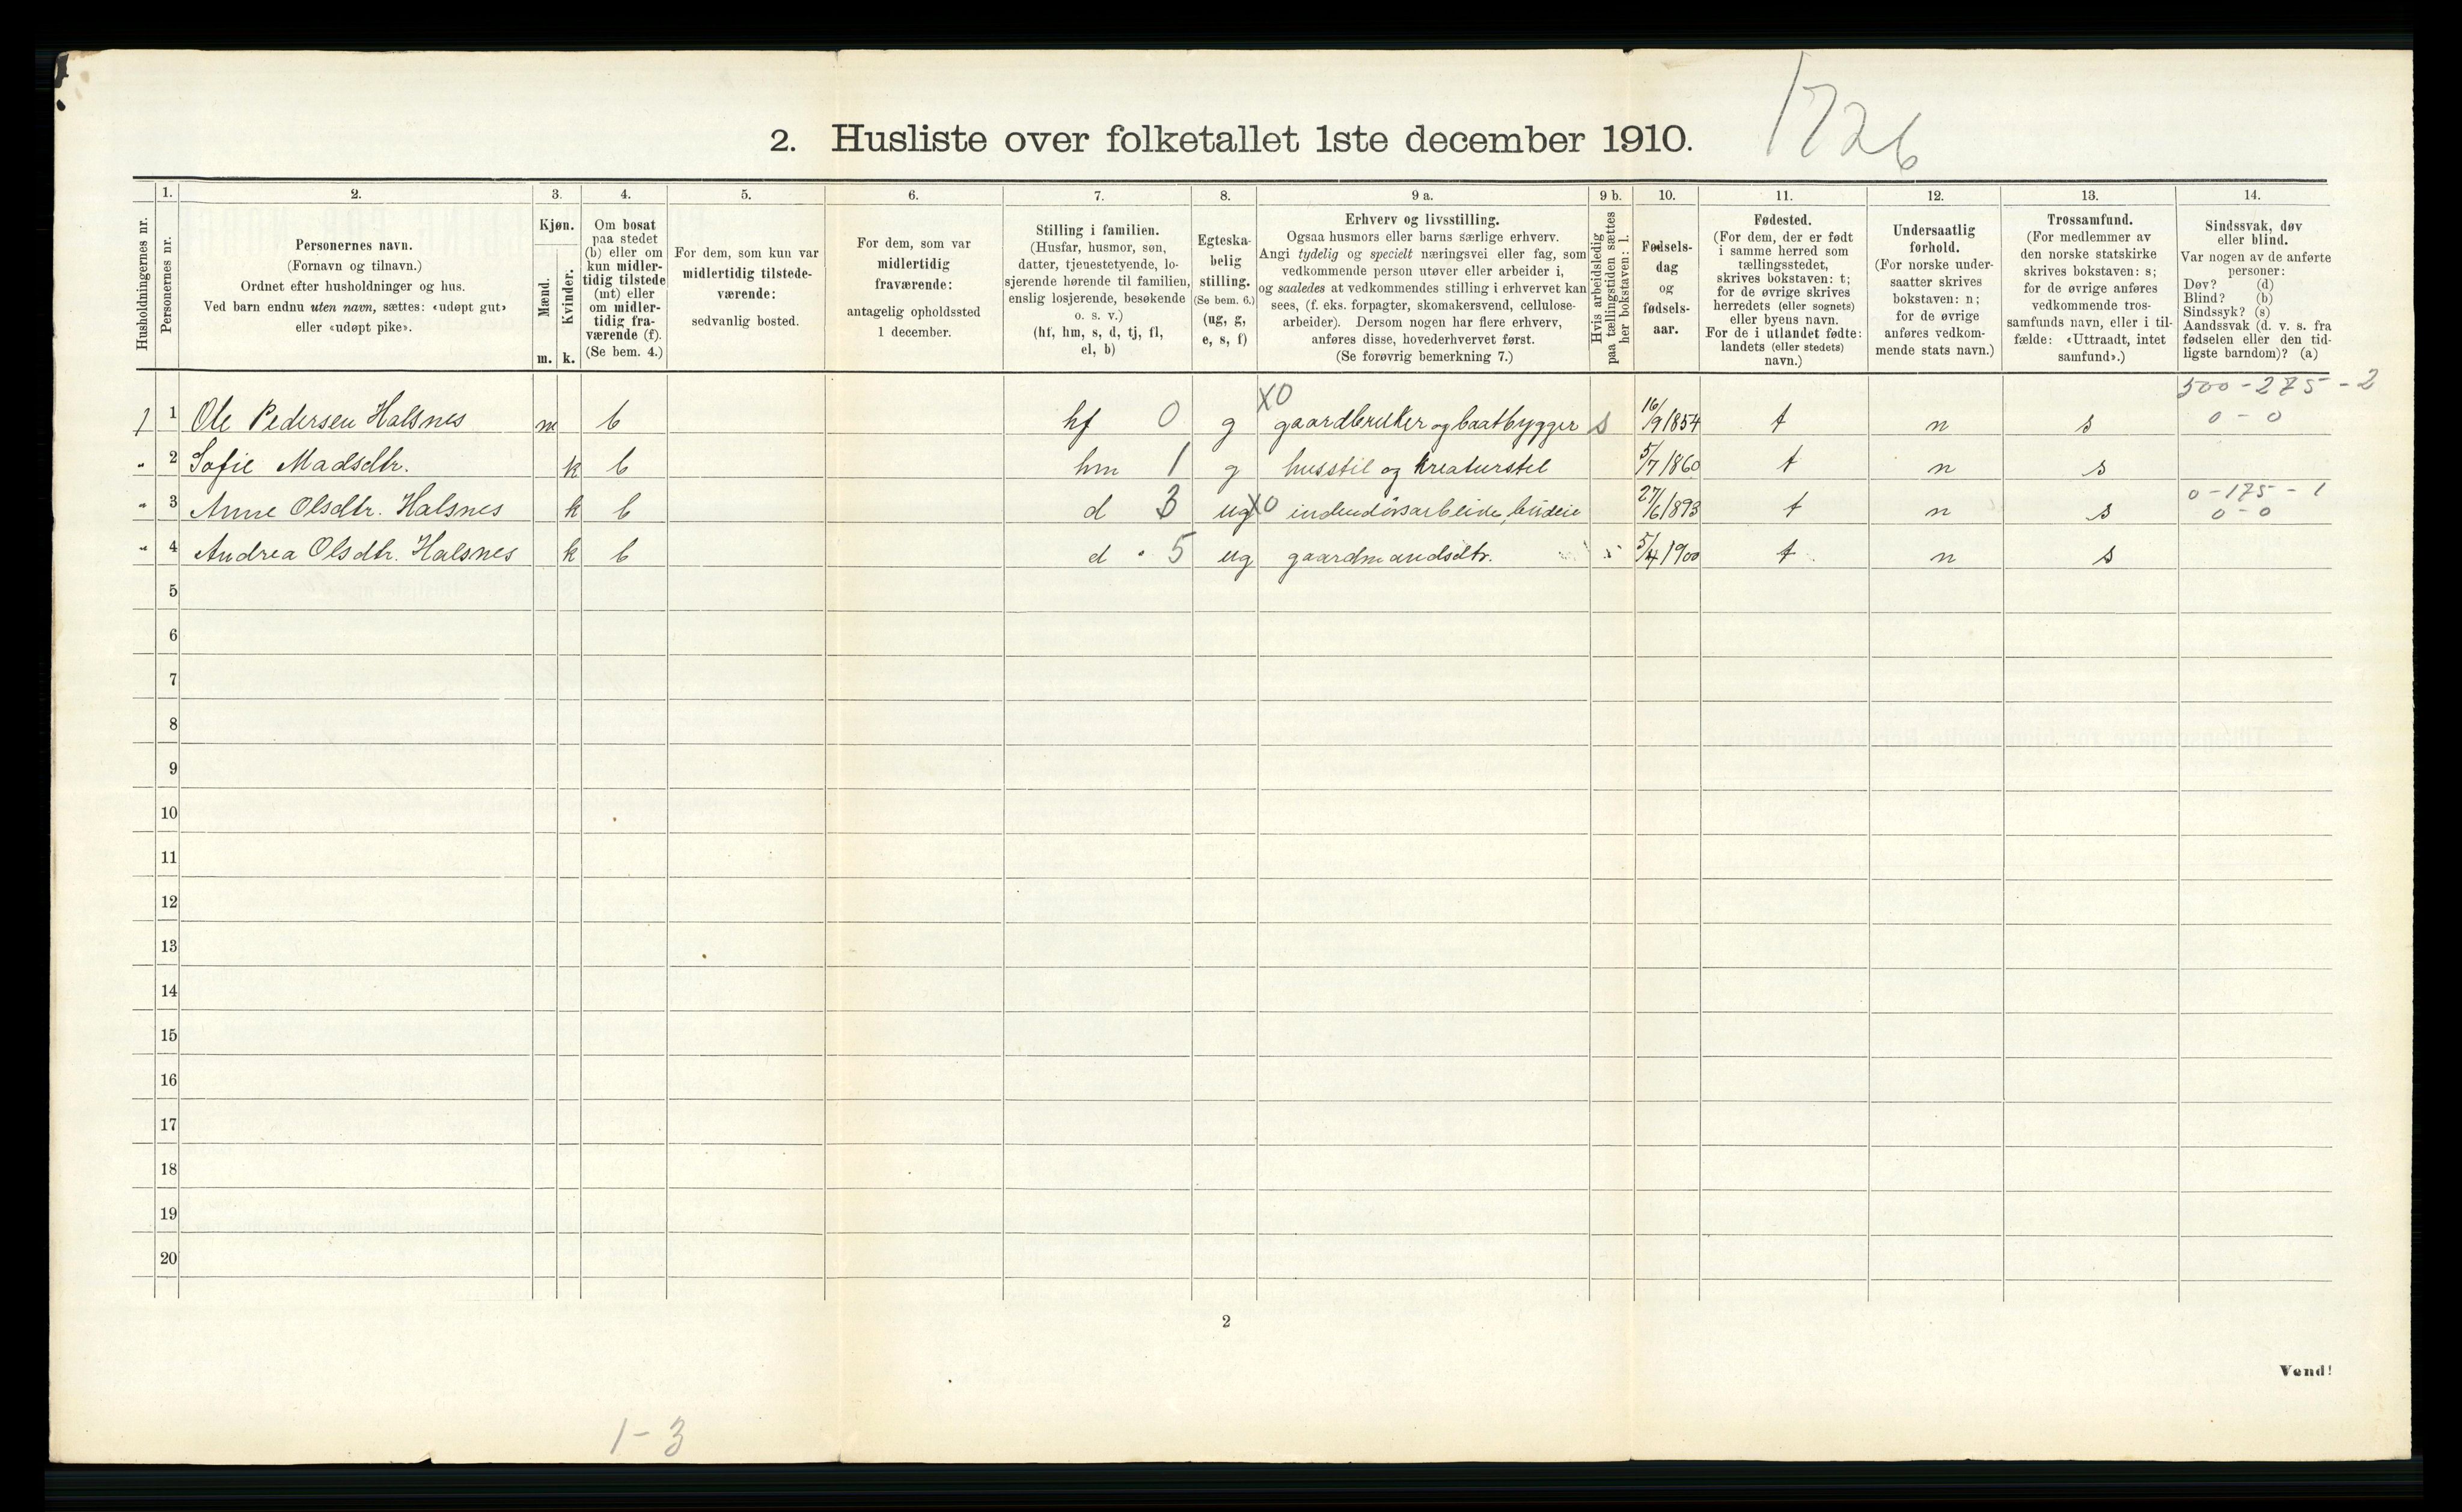 1726
2. Husliste over folketallet 1ste december 1910.
Husholdningernes nr.
1.
Personernes nr.
2.
Personernes navn.
(Fornavn og tilnavn.)
Ordnet efter husholdninger og hus.
Ved barn endnu uten navn, sættes: «udøpt gut»
eller «udøpt pike».
3.
Kjøn.
Mænd.
Kvinder.
m. k.
4.
Om bosat
paa stedet
(b) eller om
kun midler-
tidig tilstede
(mt) eller
om midler-
tidig fra-
værende (f).
(Se bem. 4.)
5.
For dem, som kun var
midlertidig tilstede-
værende:
sedvanlig bosted.
6.
For dem, som var
midlertidig
fraværende:
antagelig opholdssted
1 december.
7.
Stilling i familien.
(Husfar, husmor, søn,
datter, tjenestetyende, lo-
sjerende hørende til familien,
enslig losjerende, besøkende
o. s. v.)
(hf, hm, s, d, tj, fl,
el, b)
8.
Egteska-
belig
stilling.
(Se bem. 6.)
(ug, g,
e, s, f)
9 a.
Erhverv og livsstilling.
Ogsaa husmors eller barns særlige erhverv.
Angi tydelig og specielt næringsvei eller fag, som
vedkommende person utøver eller arbeider i,
og saaledes at vedkommendes stilling i erhvervet kan
sees, (f. eks. forpagter, skomakersvend, cellulose-
arbeider). Dersom nogen har flere erhverv,
anføres disse, hovederhvervet først.
(Se forøvrig bemerkning 7.)
9 b.
Hvis arbeidsledig
paa tællingstiden sættes
her bokstaven: l.
10.
Fødsels-
dag
og
fødsels-
aar.
11.
Fødested.
(For dem, der er født
i samme herred som
tællingsstedet,
skrives bokstaven: t;
for de øvrige skrives
herredets (eller sognets)
eller byens navn.
For de i utlandet fødte:
landets (eller stedets)
navn.)
12.
Undersaatlig
forhold.
(For norske under-
saatter skrives
bokstaven: n;
for de øvrige
anføres vedkom-
mende stats navn.)
13.
Trossamfund.
(For medlemmer av
den norske statskirke
skrives bokstaven: s;
for de øvrige anføres
vedkommende tros-
samfunds navn, eller i til-
fælde: «Uttraadt, intet
samfund».)
14.
Sindssvak, døv
eller blind.
Var nogen av de anførte
personer:
Døv? (d)
Blind? (b)
Sindssyk? (s)
Aandssvak (d. v. s. fra
fødselen eller den tid-
ligste barndom)? (a)
XO 500-275-2
1 1 Ole Pedersen Halsnes m b hf 0 g gaardbruker og baatbygger s 16/9 1854 t n s 0-0
" 2 Sofie Madsdtr. k b hm 1 g husstel og kreaturstel 5/7 1860 t n s
0-175-1
" 3 Anne Olsdtr. Halsnes k b d 3 ug XO indendørsarbeide, budeie 27/6 1893 t n s 0-0
" 4 Andrea Olsdtr. Halsnes k b d 5 ug gaardmandsdtr. 5/4 1900 t n s
5
6
7
8
9
10
11
12
13
14
15
16
17
18
19
20
2
Vend!
1-3